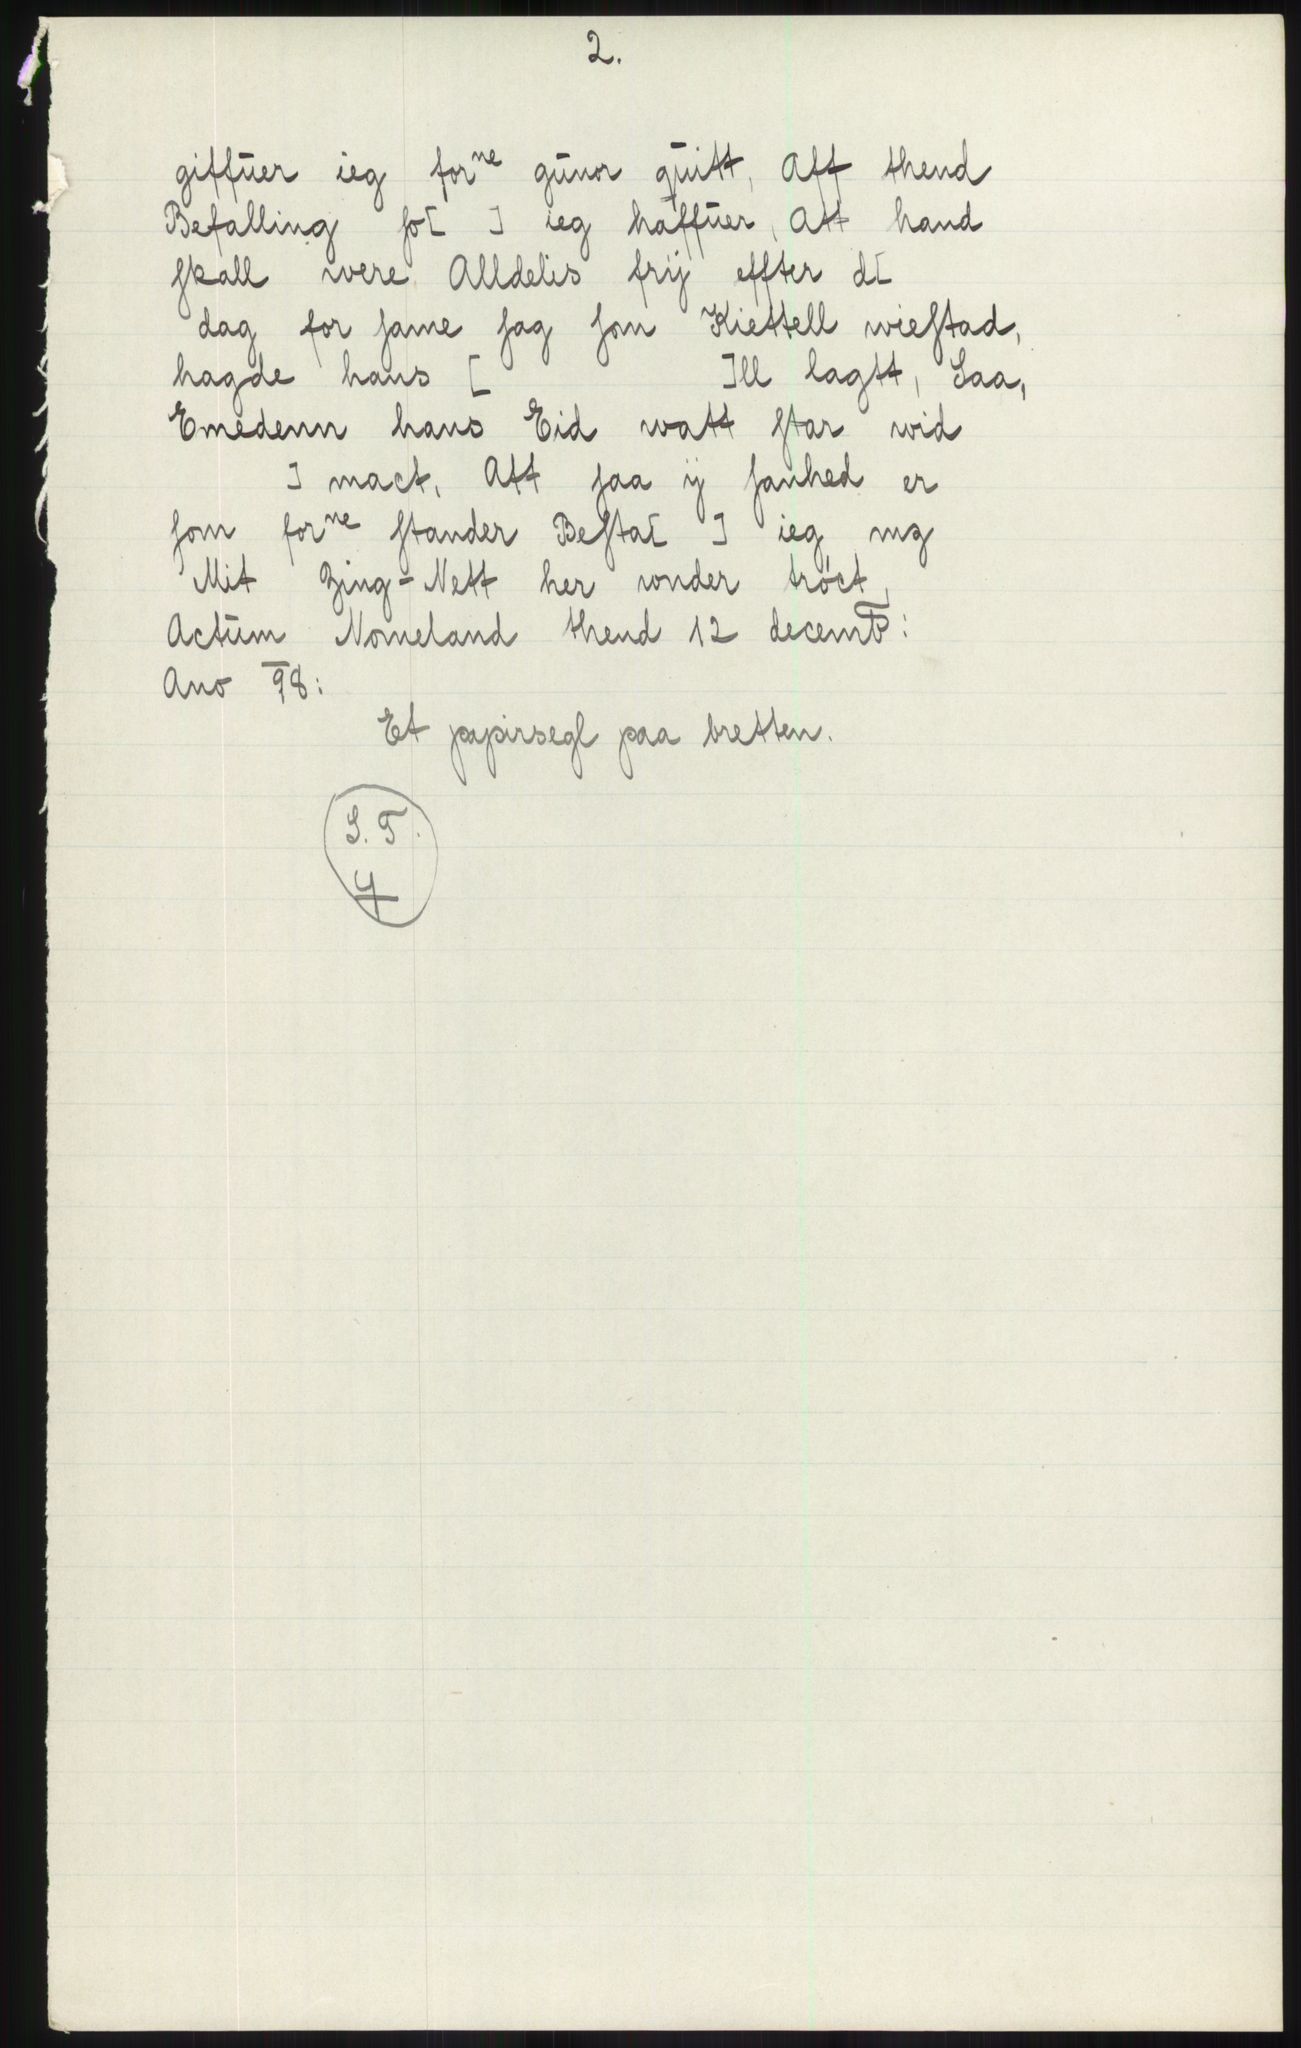 2.
giffuer ieg forne gunor quitt, Aff thend
Befalling so[ ] ieg haffuer, Att hand
skall were Alldelis frij effter d[
dag for same sag som Kiettell wiestad,
hagde hans [ ]ll lagtt, Saa,
Emedenn hans Eid watt star wid
] mact, Att saa ij sanhed er
som forne stander Besta[ ] ieg mz
Mit Zing-Nett her wnder tröct,
Actum Nomeland thend 12 decemb:
Ano 98:
Et papirsegl paa bretten.
S. T.